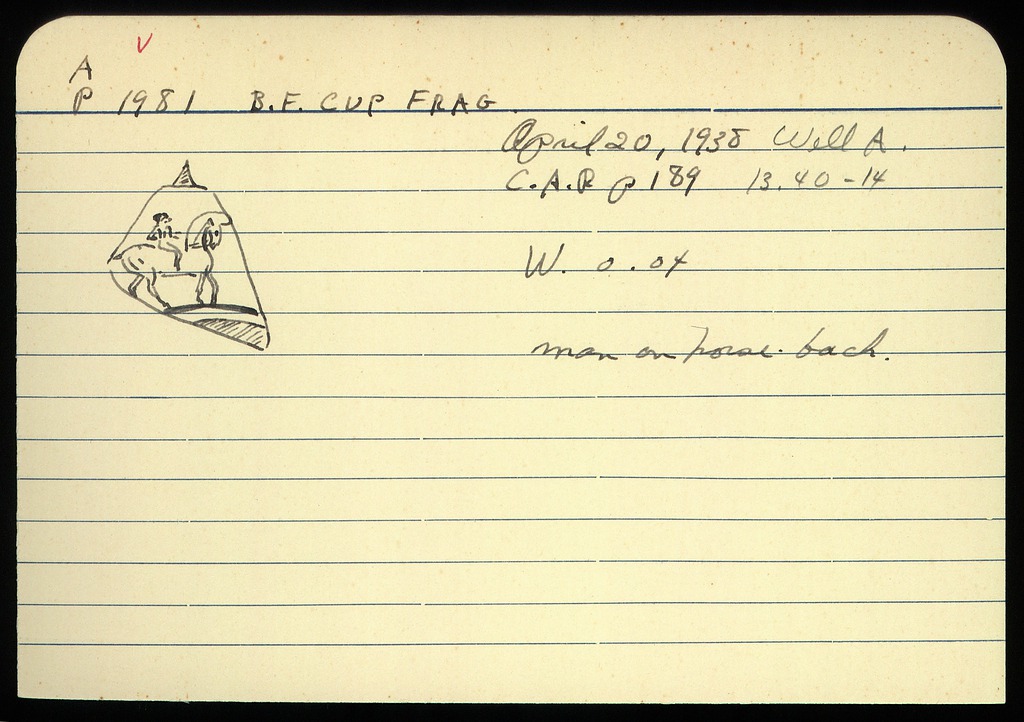 A
P 1981 B.F. CUP FRAG.
April 20, 1938 Well A.
C.A.R p 189 13.40-14
W. 0.04
man on horse back.